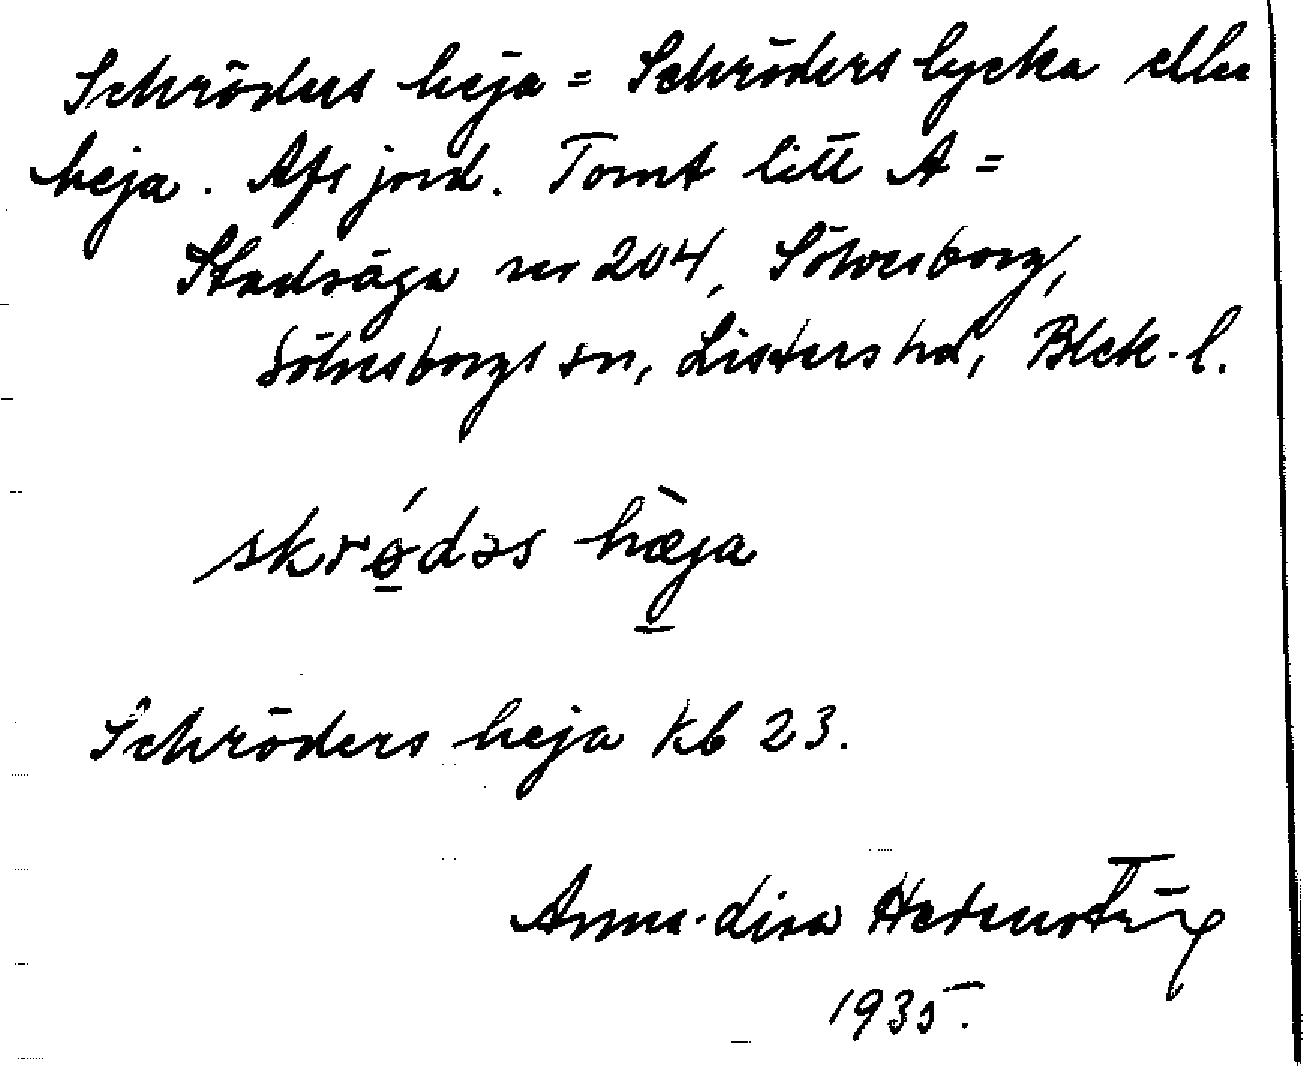 Schröders heja = Schröders lycka eller
heja. Afs jord. Tomt litt A =
Stadsäga nr 204, Sölvesborg,
Sölvesborgs sn, Listers hd, Blek. l.
skrǿ̲dəs hæ̀ja
Schröders heja kb 23.
Anna-Lisa
1935.